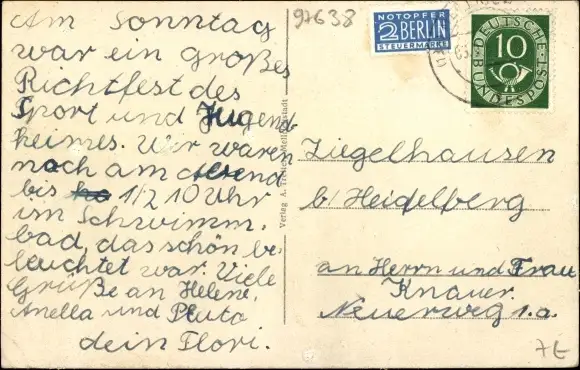 Am Sonntag
war ein großes
Richtfest des
Sport und Jugend-
heimes. Wir waren
noch am Abend
bis 1/2 10 Uhr
im Schwimm-
bad, das schön be-
leuchtet war. Viele
Grüße an Helene,
Anella und Pluto
dein Flori.
97638
NOTOPFER
2 BERLIN
STEUERMARKE
DEUTSCHE
BUNDESPOST
10
Verlag A.
Ziegelhausen
b/ Heidelberg
an Herrn und Frau
Knauer.
Neuerweg 1.a.
7E